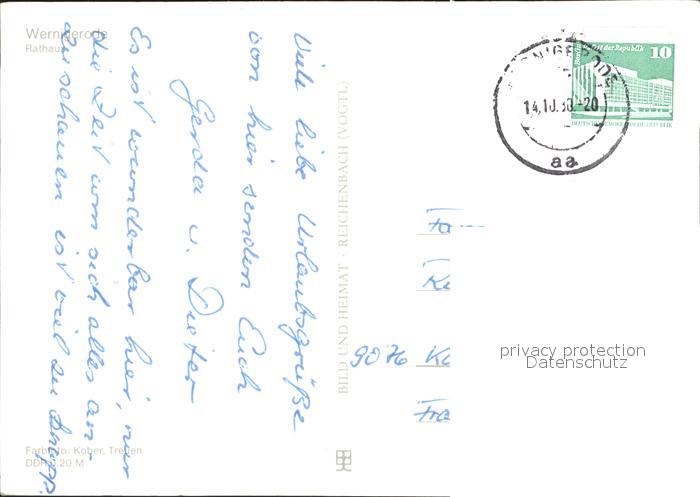 Wernigerode
Rathaus
Viele liebe Urlaubsgrüße
von hier senden Euch
Gerda u. Dieter
Es ist wunderbar hier, nur
die Zeit um sich alles an-
zuschauen ist viel zu knapp.
Farbfoto: Kober, Treffen
DDR 0,20 M
BILD UND HEIMAT · REICHENBACH (VOGTL)
Palast der Republik
10
DEUTSCHE DEMOKRATISCHE REPUBLIK
WERNIGERODE
14.10.80-20
aa
Fa
Ka
9076 Ka
Fra
privacy protection
Datenschutz